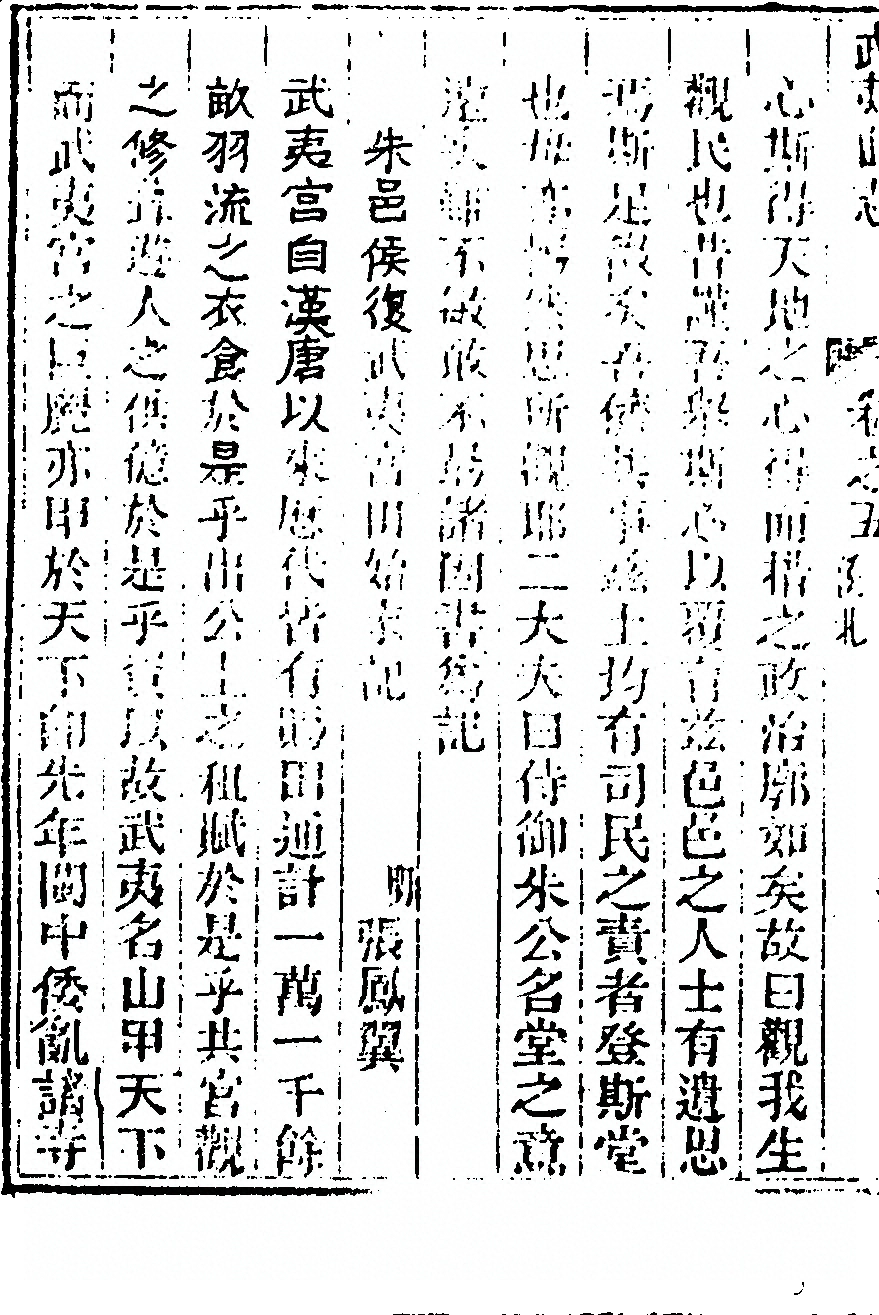 武夷山志 卷之五 溪北
心斯得天地之心得而楷之政治廓如矣故曰觀我生
觀民也昔謹吾擧斯心以覆育茲邑邑之人士有遺思
焉斯足徵矣吾儕共事茲土均有司民之責者登斯堂
也毋亦惕然思所觀耶二大夫曰侍御朱公名堂之意
不敏敢不揚諸因書爲記
朱邑侯復武夷宮田始末記
明 張鳳翼
武夷宮自漢唐以來歷代皆有賜田通計一萬一千餘
畝羽流之衣食於是乎出公上之租賦於是乎共宮觀
之修葺遊人之供億於是乎資以故武夷名山甲天下
而武夷宮之巨麗亦甲於天下卽先年閩中倭亂諸寺